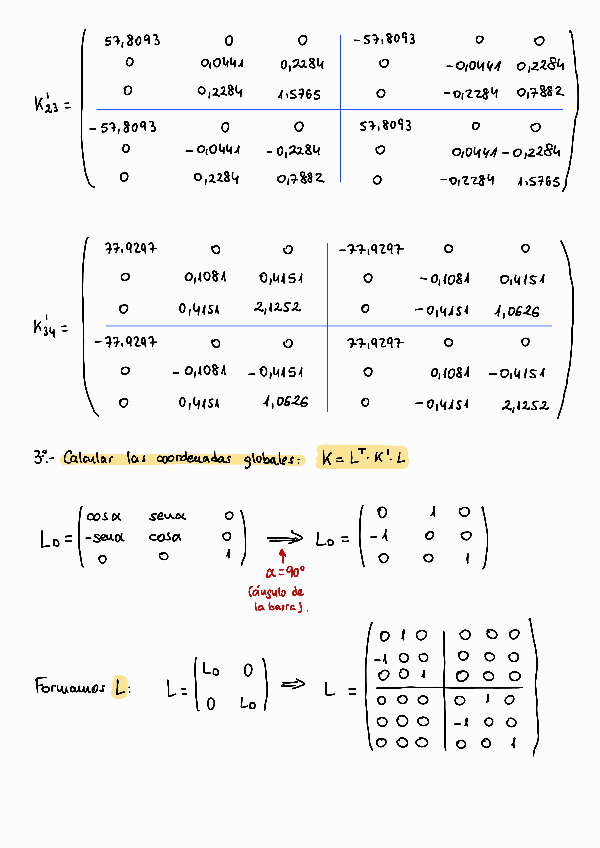 57,8093 0 0 -57,8093 0 0
0 0,0441 0,2284 0 -0,0441 0,2284
K'23 = 0 0,2284 1.5765 0 -0,2284 0,7882
-57,8093 0 0 57,8093 0 0
0 -0,0441 -0,2284 0 0,0441 -0,2284
0 0,2284 0,7882 0 -0,2284 1.5765
77,9297 0 0 -77,9297 0 0
0 0,1081 0,4151 0 -0,1081 0,4151
0 0,4151 2,1252 0 -0,4151 1,0626
K'34 =
-77,9297 0 0 77,9297 0 0
0 -0,1081 -0,4151 0 0,1081 -0,4151
0 0,4151 1,0626 0 -0,4151 2,1252
3º.- Calcular las coordenadas globales: K = L^T · K' · L
cosα senα 0 0 1 0
L0 = -senα cosα 0 ⟹ L0 = -1 0 0
0 0 1 0 0 1
α=90º
(ángulo de
la barra).
0 1 0 0 0 0
-1 0 0 0 0 0
L0 0 0 0 1 0 0 0
Formamos L: L = ⟹ L =
0 L0 0 0 0 0 1 0
0 0 0 -1 0 0
0 0 0 0 0 1